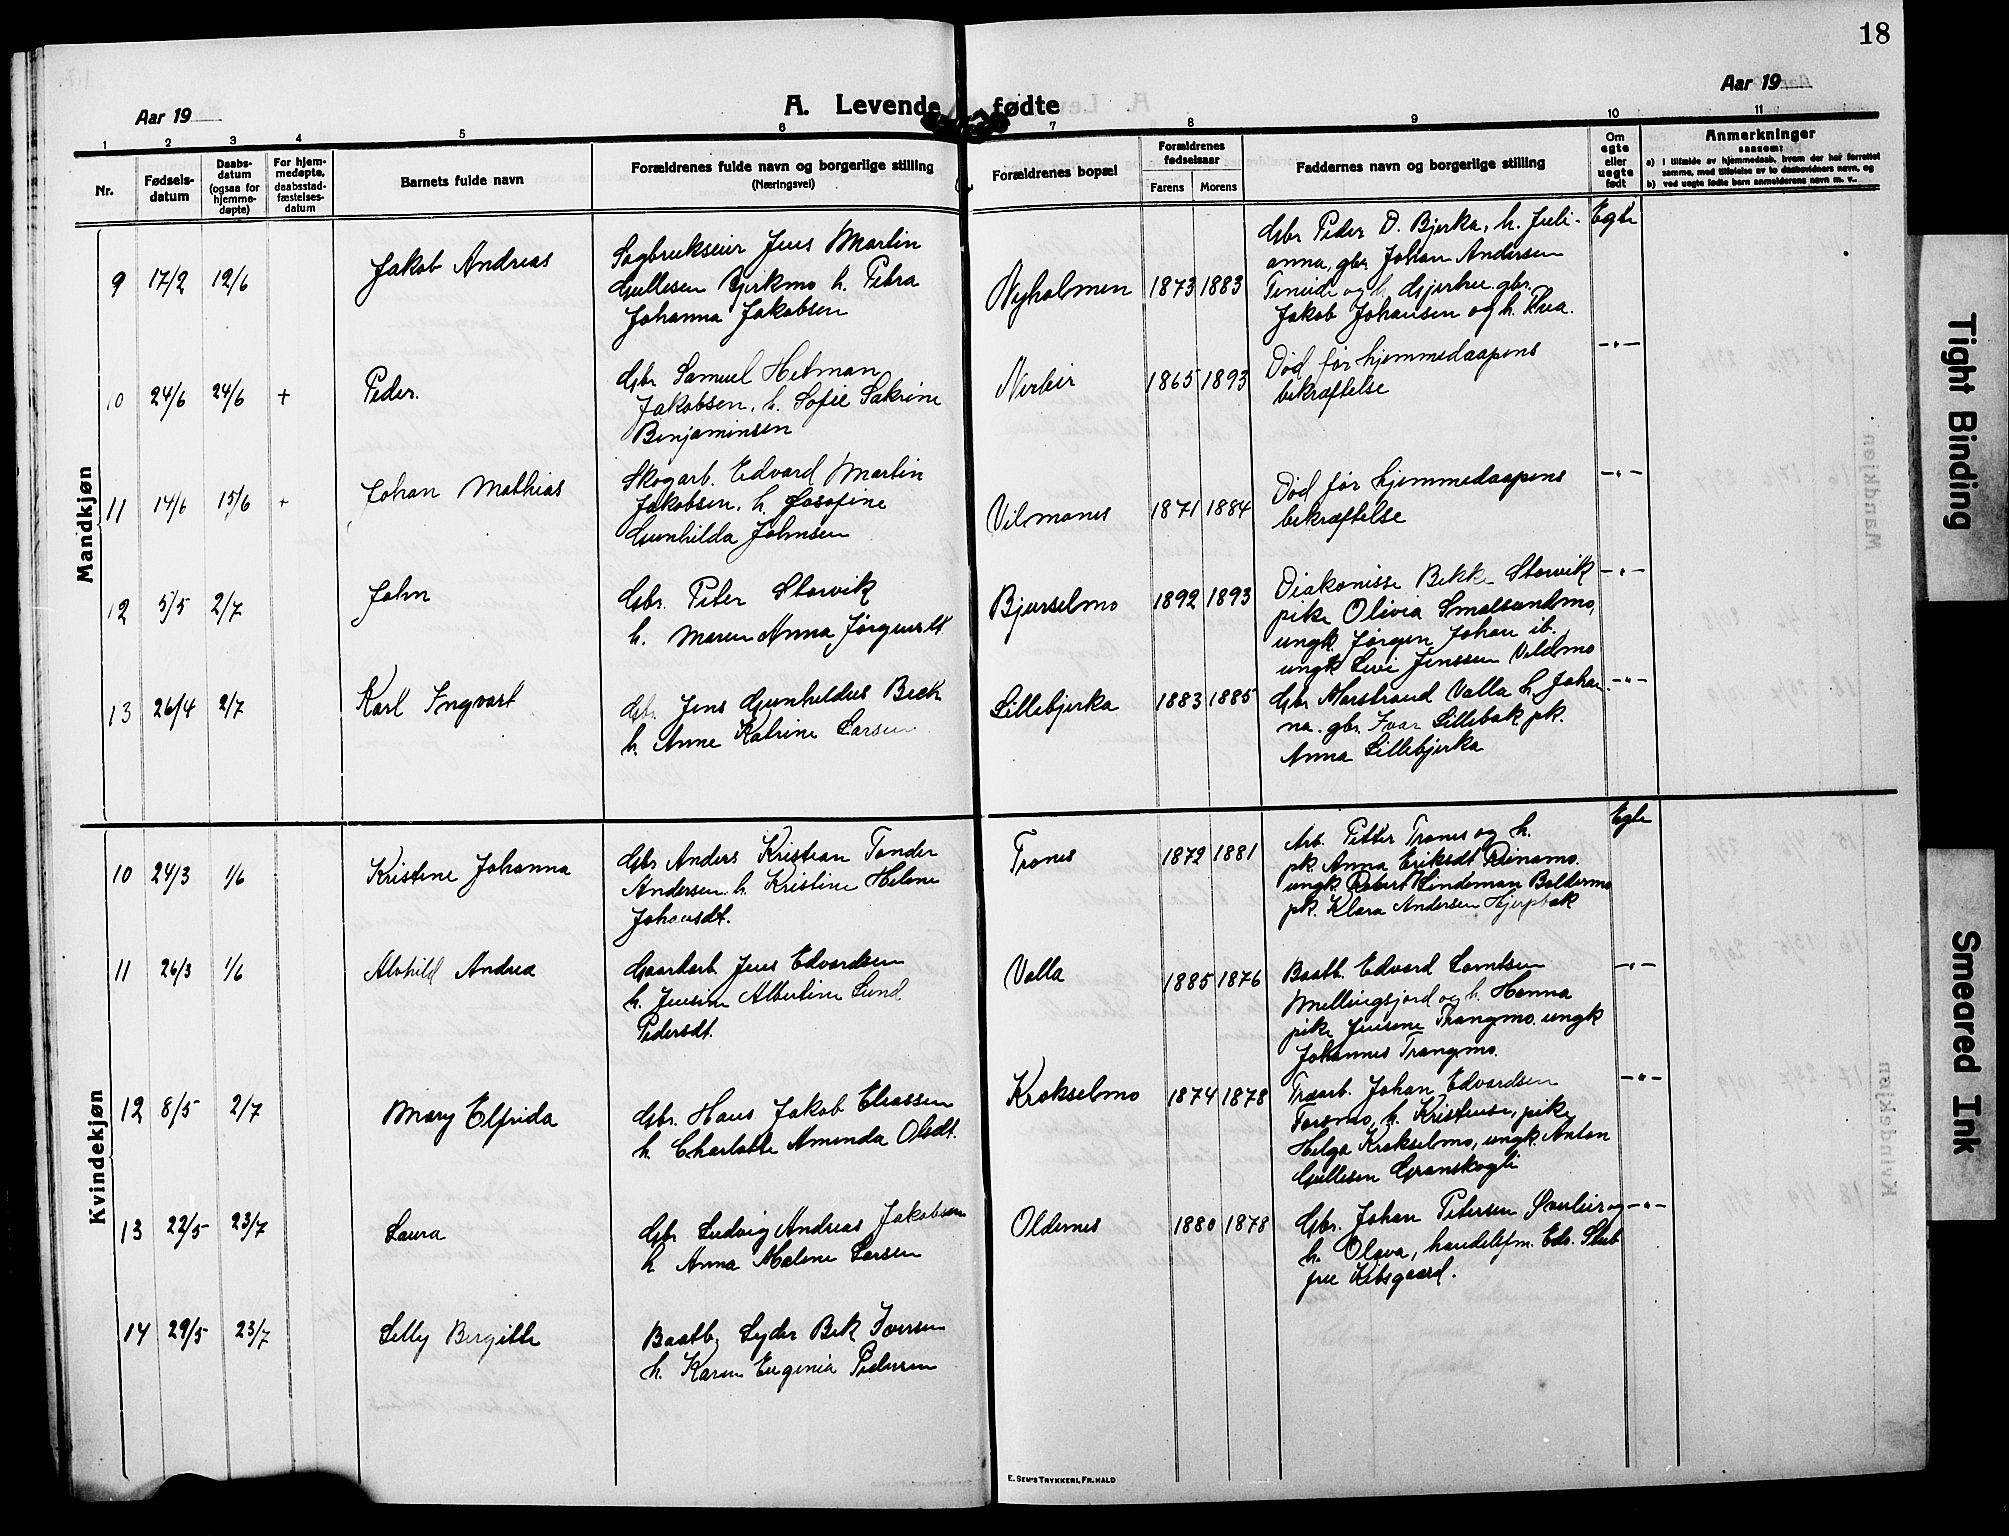 18
Aar 19
A. Levende fødte
Aar 19
1 2 3 4 5 6 7 8 9 10 11
Nr.
Fødsels-
datum
Daabs-
datum
(ogsaa for
hjemme-
døpte)
For hjem-
medøpte,
daabsstad-
fæstelses-
datum
Barnets fulde navn
Forældrenes fulde navn og borgerlige stilling
(Næringsvei)
Forældrenes bopæl
Forældrenes
fødselsaar
Farens Morens
Faddernes navn og borgerlige stilling
Om
egte
eller
uegte
født
Anmerkninger
saasom:
a) i tilfælde av hjemmedaab, hvem der har forrettet
samme, med tilføielse av to daabsvidners navn, og
b) ved uegte fødte barn anmelderens navn m. v..
Mandkjøn
9 17/2 12/6 Jakob Andreas
Sagbrukseier Jens Martin
Gullesen Bjerkmo h. Petra
Johanna Jakobsen
Nyholmen 1873 1883
Gbr Peder D. Bjerka, h. Juli-
anna, gbr Johan Andersen
og h. gbr.
Jakob Johansen og h. Thea.
Egte
10 24/6 24/6 + Peder.
Gbr Samuel Hetman
Jakobsen, h. Sofie Sakrine
Benjaminsen
1865 1893
Død før hjemmedaapens
bekræftelse
-"-
11 14/6 15/6 + Johan Mathias
Skogarb. Edvard Martin
Jakobsen, h. Josefine
Gunhilda Johnsen
Vilmones 1871 1884
Død før hjemmedaapens
bekræftelse
-"-
12 5/5 2/7 John
Gbr. Peter Storvik
h. Maren Anna Jørgensdt
Bjurselmo 1892 1893
Diakonisse Bekke Storvik
pike Olivia Smalsundmo,
ungk Jørgen Johan ib.
ungk Levi Jenssen Vildmo
-"-
13 26/4 2/7 Karl Ingvart
Gbr. Jens Gunhildus Beck
h. Anne Katrine Larsen
Lillebjerka 1883 1885
Gbr Marstrand Valla h. Johan-
na. gbr. Ivar Lillebak pk.
Anna Lillebjerka
-"-
Kvindekjøn
10 24/3 1/6 Kristine Johanna
Gbr Anders Kristian Tander
Andersen h. Kristine Helene
Johansdt.
Trones 1872 1881
Arb. Petter Trones og h.
pk. Anna Eriksdt Reinamo.
ungk. Robert Lindeman Baldermo
pk. Klara Andersen Hjerpbak
Egte
11 26/3 1/6 Alvhild Andrea
Gaardarb Jens Edvardsen
h. Jensine Albertine Lund
Pedersdt.
Valla 1885 1876
Baatb. Edvard Lorntsen
Mellingsjord og h. Hanna
pike Jensine Trangmo. ungk
Johannes Trangmo.
-"-
12 8/5 2/7 Mary Elfrida
Gbr. Hans Jakob Eliassen
h. Charlotte Amanda Olsdt.
Krokselmo 1874 1878
Træarb. Johan Edvardsen
Toremo, h. Kristense, pike
Helga Krokselmo, ungk. Anton
Gullesen Granskogli
-"-
13 22/5 23/7 Laura
Gbr Ludvig Andreas Jakobsen
h Anna Malene Larsen
Oldernes 1880 1878
Gbr. Johan Petersen og
h. Olava, handelsfm. Edv. Stub
frue Kibsgaard.
-"-
14 29/5 23/7 Lelly Bergitte
Baatb. Lyder Bek Iversen
h. Karen Eugenia Pedersen
E. Sem's Trykkeri, Fr.hald
Tight Binding
Smeared Ink